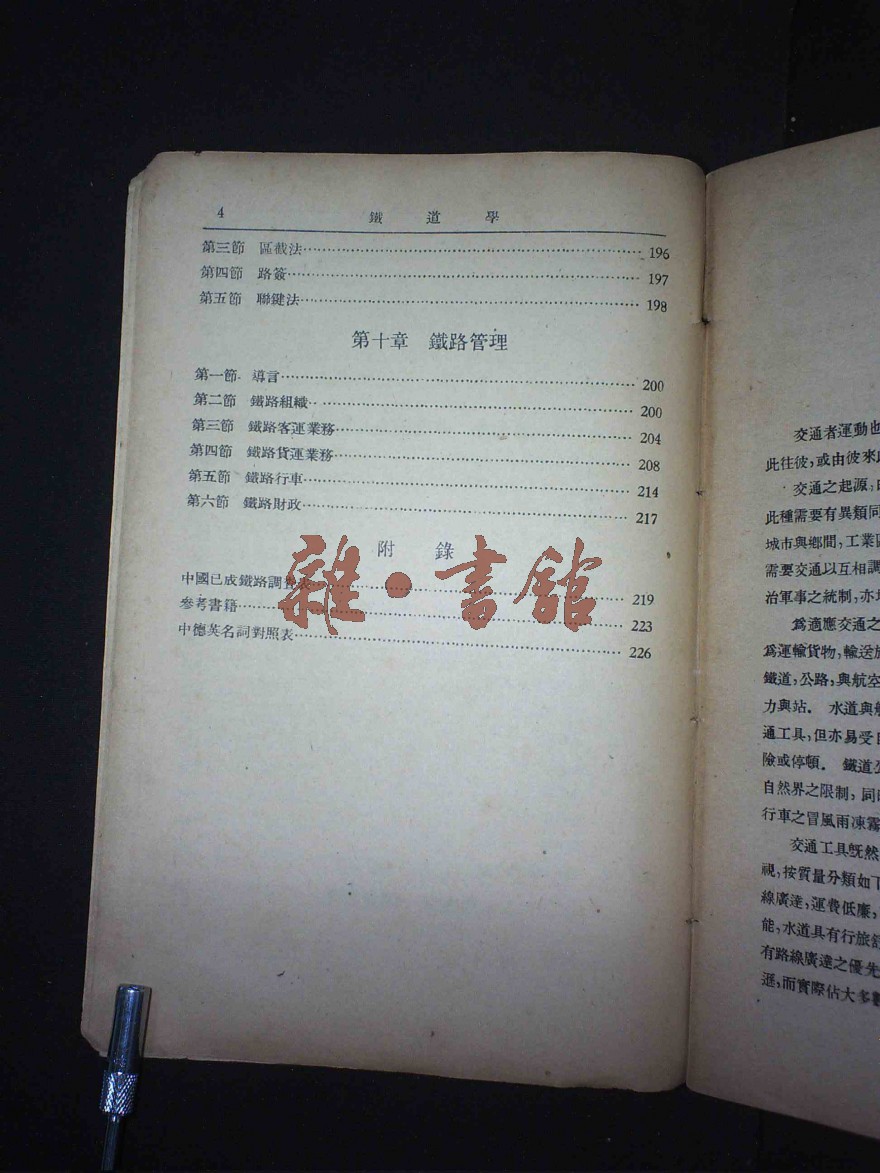 4 鐵道學
第三節 區截法 196
第四節 路簽 197
第五節 聯鍵法 198
第十章 鐵路管理
第一節 導言 200
第二節 鐵路組織 200
第三節 鐵路客運業務 204
第四節 鐵路貨運業務 208
第五節 鐵路行車 214
第六節 鐵路財政 217
附錄
中國已成鐵路調查表 219
參考書籍 223
中德英名詞對照表 226
雜·書館
交通者運動也
此往彼,或由彼來此
交通之起源,
此種需要有異類同
城市與鄉間,工業區
需要交通以互相調
治軍事之統制,亦
爲適應交通之
爲運輸貨物,輸送旅
鐵道,公路,與航空
力與站。 水道與航
通工具,但亦易受自
險或停頓。 鐵道公
自然界之限制,同時
行車之冒風雨凍霧
交通工具旣然
視,按質量分類如下
線廣達,運費低廉,
能,水道具有行旅舒
有路線廣達之優先
遜,而實際佔大多數